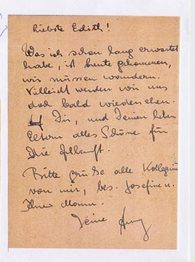 Liebste Edith!
Was ich schon lang erwartet
habe, ist heute gekommen,
wir müssen wandern.
Vielleicht werden wir uns
doch bald wiedersehen.
Dir, und Deinen lieben
Eltern alles Schöne für
Die Zukunft.
Bitte grüße alle Kolleginen
von mir, bes. Josefine u.
Ihre Mama.
Deine